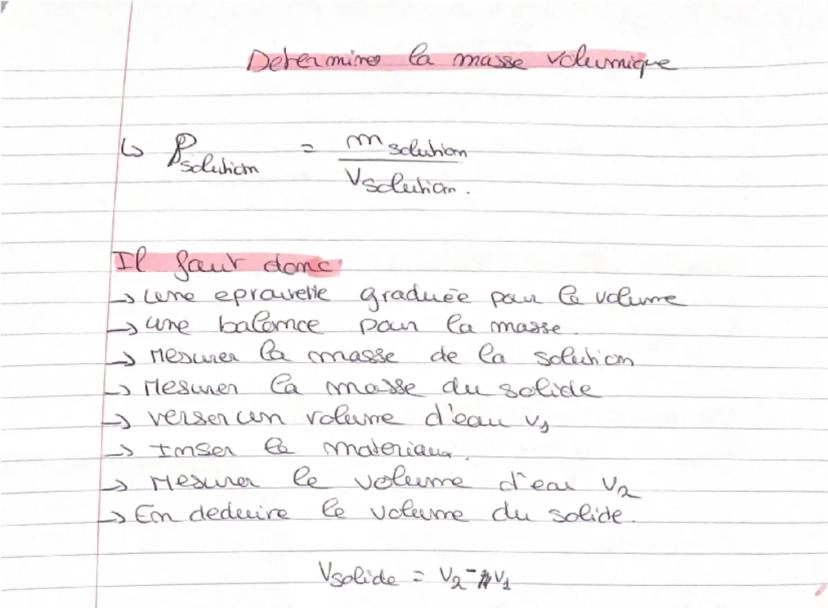 Determiner la masse volumique
↳ ρsolution = m solution / Vsolution.
Il faut donc
→ une eprouvette graduée pour le volume
→ une balance pour la masse.
→ Mesurer la masse de la solution
→ Mesurer la masse du solide
→ verser un volume d'eau V1
→ Inser le materiaux.
→ Mesurer le volume d'eau V2
→ En deduire le volume du solide.
Vsolide = V2 - V1